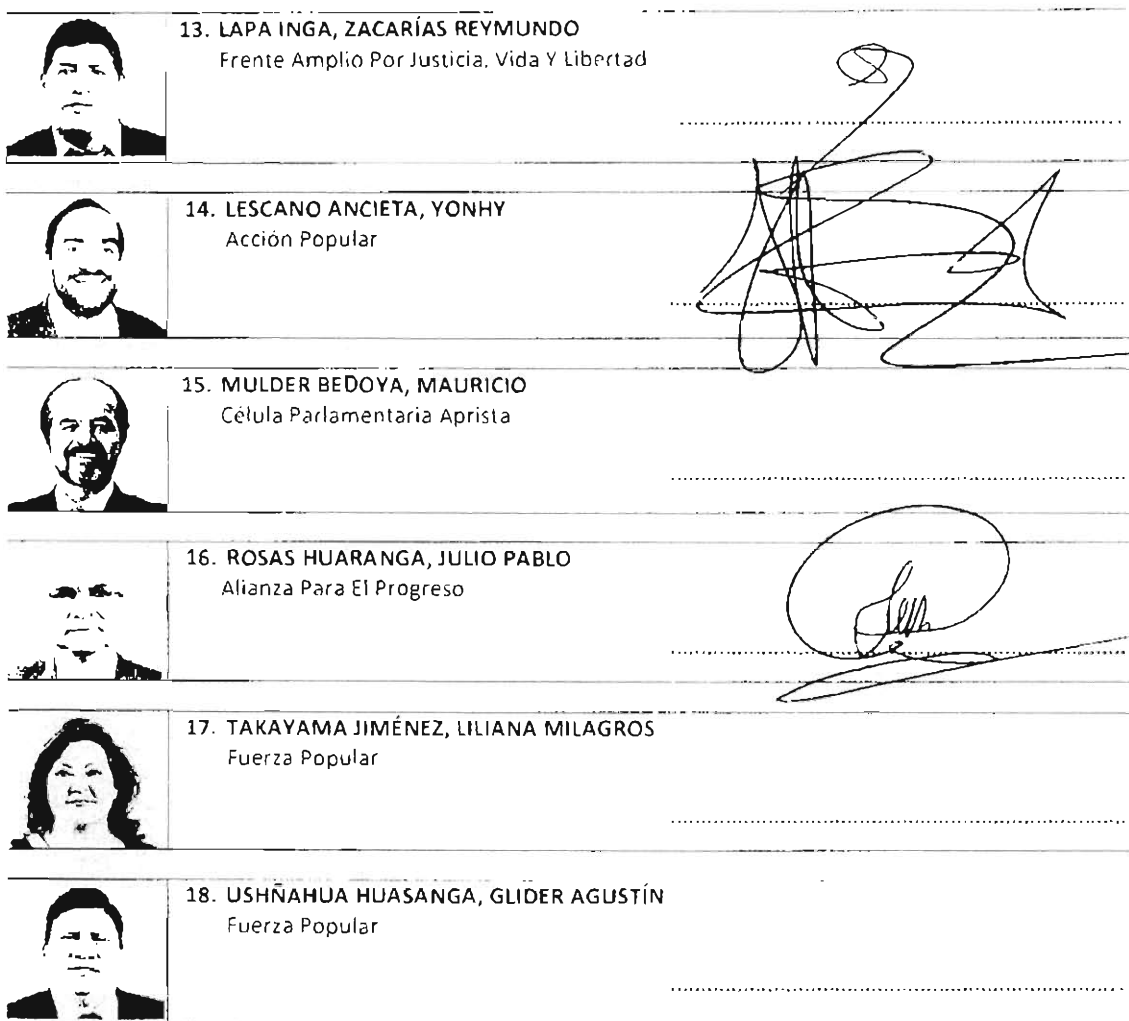 13. LAPA INGA, ZACARÍAS REYMUNDO
Frente Amplio Por Justicia, Vida Y Libertad
14. LESCANO ANCIETA, YONHY
Acción Popular
15. MULDER BEDOYA, MAURICIO
Célula Parlamentaria Aprista
16. ROSAS HUARANGA, JULIO PABLO
Alianza Para El Progreso
17. TAKAYAMA JIMÉNEZ, LILIANA MILAGROS
Fuerza Popular
18. USHÑAHUA HUASANGA, GLIDER AGUSTÍN
Fuerza Popular